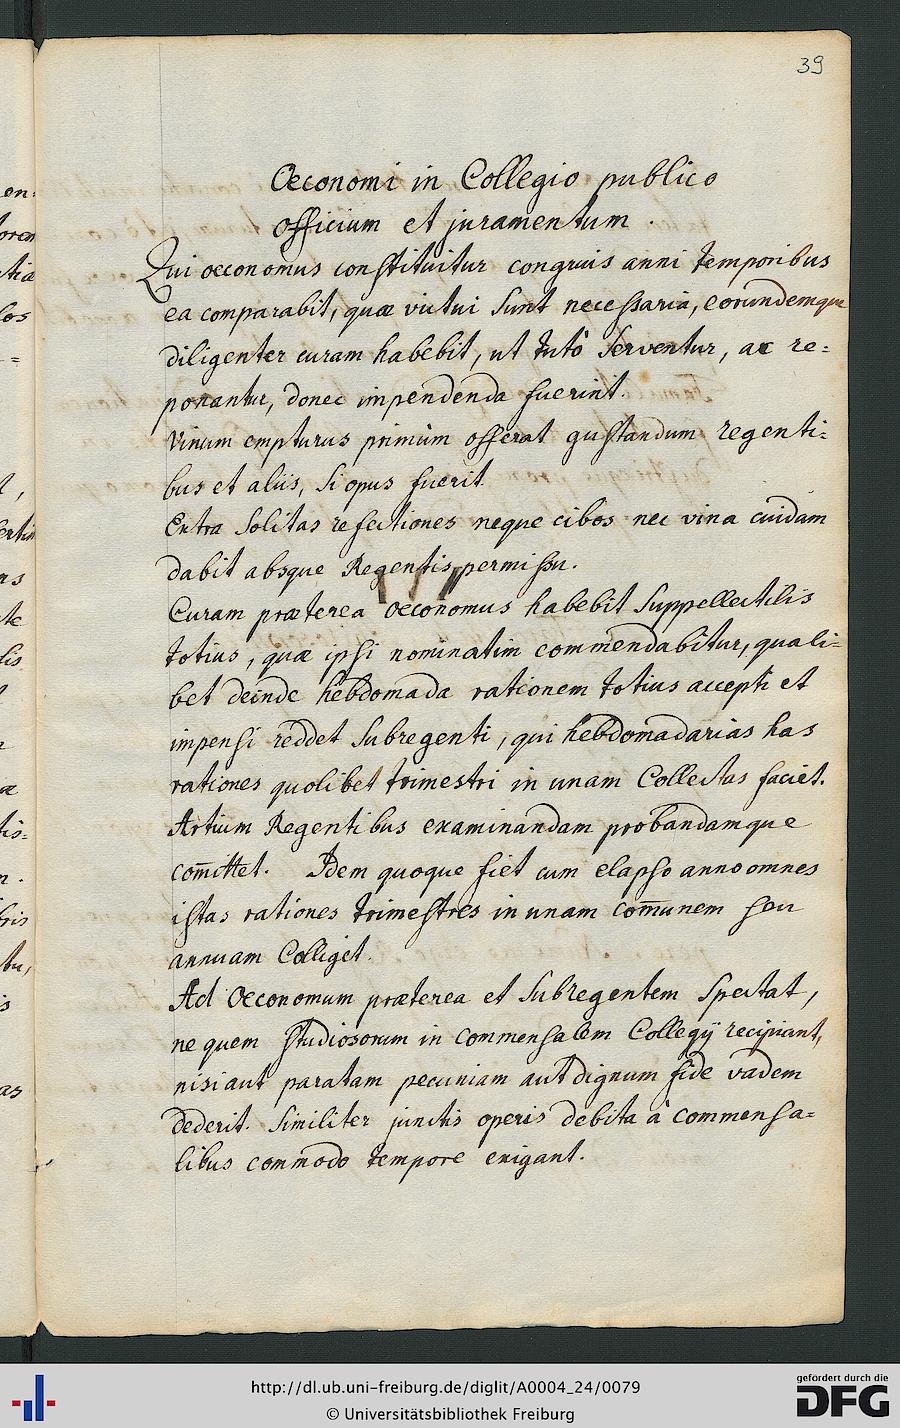 39
Oeconomi in Collegio publico
officium et juramentum.
Qui oeconomus constituitur congruis anni temporibus
ea comparabit, quæ victui sunt necessaria, eorundemque
diligenter curam habebit, ut tutò serventur, ac re=
ponantur, donec impendenda fuerint.
Vinum empturus primùm offerat gustandum regenti=
bus et aliis, si opus fuerit.
Extra solitas refectiones neque cibos nec vina cuidam
dabit absque Regentis permissu.
Curam præterea oeconomus habebit suppellectilis
totius, quæ ipsi nominatim commendabitur, quali=
bet deinde hebdomada rationem totius accepti et
impensi reddet subregenti, qui hebdomadarias has
rationes quolibet trimestri in unam Collectas faciet.
Artium Regentibus examinandam probandamque
com̄ittet. Idem quoque fiet cum elapso anno omnes
istas rationes trimestres in unam com̄unem seu
annuam Colliget.
Ad Oeconomum præterea et subregentem spectat,
ne quem studiosorum in commensalem Collegij recipiant,
nisi aut paratam pecuniam aut dignum fide vadem
dederit. Similiter junctis operis debita à commensa=
libus commodo tempore exigant.
on:
los
=
te
lis
æ
tis=
n.
is
as
http://dl.ub.uni-freiburg.de/diglit/A0004_24/0079
© Universitätsbibliothek Freiburg
gefördert durch die
DFG